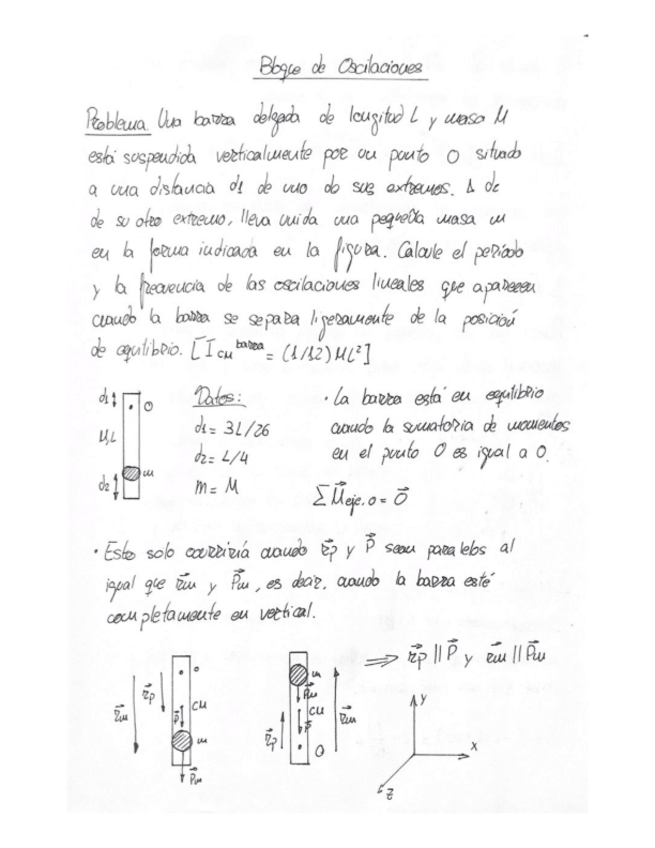 Bloque de Oscilaciones
Problema Una barra delgada de longitud L y masa M
está suspendida verticalmente por un punto O situado
a una distancia d1 de uno do sus extremos. A d2
de su otro extremo, lleva unida una pequeña masa m
en la forma indicada en la figura. Calcule el período
y la frecuencia de las oscilaciones lineales que aparecen
cuando la barra se separa ligeramente de la posición
de equilibrio. [I CM barra = (1/12) ML²]
d1
O
M,L
m
d2
Datos:
d1 = 3L/26
d2 = L/4
m = M
· La barra está en equilibrio
cuando la sumatoria de momentos
en el punto O es igual a O.
ΣM⃗eje.o = O⃗
· Esto solo ocurriría cuando r⃗p y P⃗ sean paralelos al
igual que r⃗m y P⃗m, es decir, cuando la barra esté
completamente en vertical.
⟹ r⃗p || P⃗ y r⃗m || P⃗m
o
r⃗p
r⃗m
CM
P⃗
m
P⃗m
m
P⃗m
CM
P⃗
r⃗m
r⃗p
O
y
x
z